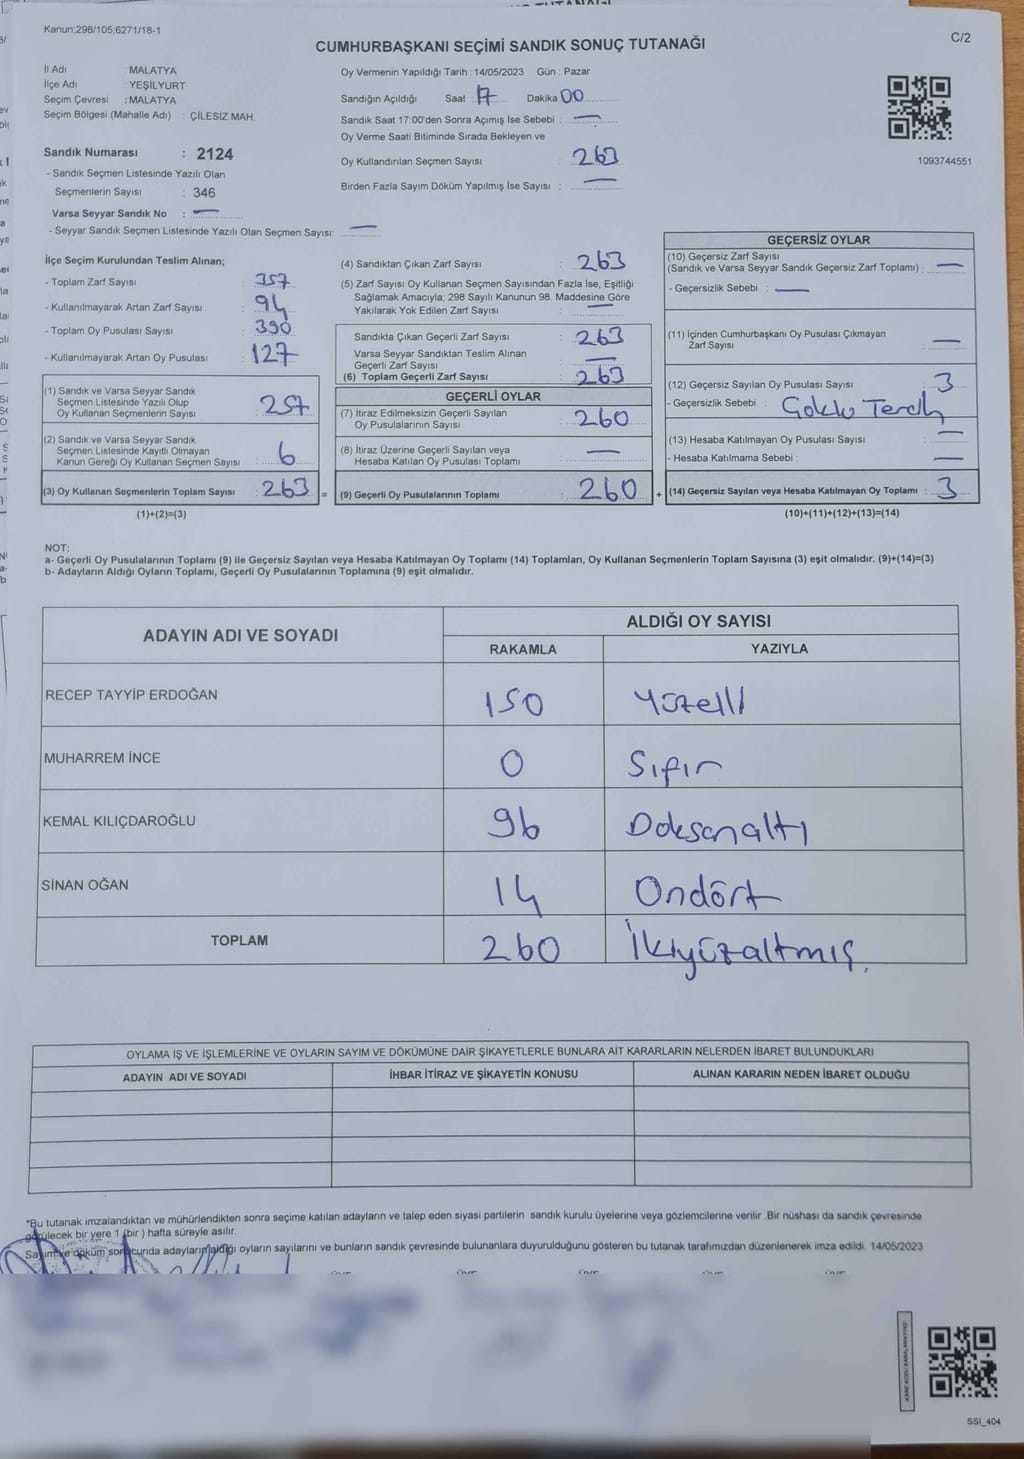 Kanun;298/105;6271/18-1
CUMHURBAŞKANI SEÇİMİ SANDIK SONUÇ TUTANAĞI
C/2
İl Adı : MALATYA
İlçe Adı : YEŞİLYURT
Seçim Çevresi : MALATYA
Seçim Bölgesi (Mahalle Adı) : ÇİLESİZ MAH.
Sandık Numarası : 2124
- Sandık Seçmen Listesinde Yazılı Olan
Seçmenlerin Sayısı : 346
Varsa Seyyar Sandık No : —
- Seyyar Sandık Seçmen Listesinde Yazılı Olan Seçmen Sayısı: —
Oy Vermenin Yapıldığı Tarih : 14/05/2023 Gün : Pazar
Sandığın Açıldığı Saat 17 Dakika 00
Sandık Saat 17:00'den Sonra Açımış İse Sebebi : —
Oy Verme Saati Bitiminde Sırada Bekleyen ve
Oy Kullandırılan Seçmen Sayısı : 263
Birden Fazla Sayım Döküm Yapılmış İse Sayısı : —
1093744551
İlçe Seçim Kurulundan Teslim Alınan;
- Toplam Zarf Sayısı : 357
- Kullanılmayarak Artan Zarf Sayısı : 94
- Toplam Oy Pusulası Sayısı : 390
- Kullanılmayarak Artan Oy Pusulası : 127
(1) Sandık ve Varsa Seyyar Sandık
Seçmen Listesinde Yazılı Olup
Oy Kullanan Seçmenlerin Sayısı : 257
(2) Sandık ve Varsa Seyyar Sandık
Seçmen Listesinde Kayıtlı Olmayan
Kanun Gereği Oy Kullanan Seçmen Sayısı : 6
(3) Oy Kullanan Seçmenlerin Toplam Sayısı : 263 =
(1)+(2)=(3)
(4) Sandıktan Çıkan Zarf Sayısı : 263
(5) Zarf Sayısı Oy Kullanan Seçmen Sayısından Fazla İse, Eşitliği
Sağlamak Amacıyla; 298 Sayılı Kanunun 98. Maddesine Göre
Yakılarak Yok Edilen Zarf Sayısı : —
Sandıkta Çıkan Geçerli Zarf Sayısı : 263
Varsa Seyyar Sandıktan Teslim Alınan
Geçerli Zarf Sayısı : —
(6) Toplam Geçerli Zarf Sayısı : 263
GEÇERLİ OYLAR
(7) İtiraz Edilmeksizin Geçerli Sayılan
Oy Pusulalarının Sayısı : 260
(8) İtiraz Üzerine Geçerli Sayılan veya
Hesaba Katılan Oy Pusulası Toplamı : —
(9) Geçerli Oy Pusulalarının Toplamı : 260 +
GEÇERSİZ OYLAR
(10) Geçersiz Zarf Sayısı
(Sandık ve Varsa Seyyar Sandık Geçersiz Zarf Toplamı) : —
- Geçersizlik Sebebi : —
(11) İçinden Cumhurbaşkanı Oy Pusulası Çıkmayan
Zarf Sayısı : —
(12) Geçersiz Sayılan Oy Pusulası Sayısı : 3
- Geçersizlik Sebebi : Çoklu Tercih
(13) Hesaba Katılmayan Oy Pusulası Sayısı : —
- Hesaba Katılmama Sebebi : —
(14) Geçersiz Sayılan veya Hesaba Katılmayan Oy Toplamı : 3
(10)+(11)+(12)+(13)=(14)
NOT:
a- Geçerli Oy Pusulalarının Toplamı (9) ile Geçersiz Sayılan veya Hesaba Katılmayan Oy Toplamı (14) Toplamları, Oy Kullanan Seçmenlerin Toplam Sayısına (3) eşit olmalıdır. (9)+(14)=(3)
b- Adayların Aldığı Oyların Toplamı, Geçerli Oy Pusulalarının Toplamına (9) eşit olmalıdır.
ADAYIN ADI VE SOYADI
ALDIĞI OY SAYISI
RAKAMLA YAZIYLA
RECEP TAYYİP ERDOĞAN 150 Yüzelli
MUHARREM İNCE 0 Sıfır
KEMAL KILIÇDAROĞLU 96 Doksanaltı
SİNAN OĞAN 14 Ondört
TOPLAM 260 İkiyüzaltmış.
OYLAMA İŞ VE İŞLEMLERİNE VE OYLARIN SAYIM VE DÖKÜMÜNE DAİR ŞİKAYETLERLE BUNLARA AİT KARARLARIN NELERDEN İBARET BULUNDUKLARI
ADAYIN ADI VE SOYADI İHBAR İTİRAZ VE ŞİKAYETİN KONUSU ALINAN KARARIN NEDEN İBARET OLDUĞU
*Bu tutanak imzalandıktan ve mühürlendikten sonra seçime katılan adayların ve talep eden siyasi partilerin sandık kurulu üyelerine veya gözlemcilerine verilir. Bir nüshası da sandık çevresinde
görülecek bir yere 1 (bir) hafta süreyle asılır.
Sayım ve döküm sonucunda adayların aldığı oyların sayılarını ve bunların sandık çevresinde bulunanlara duyurulduğunu gösteren bu tutanak tarafımızdan düzenlenerek imza edildi. 14/05/2023
SSI_404